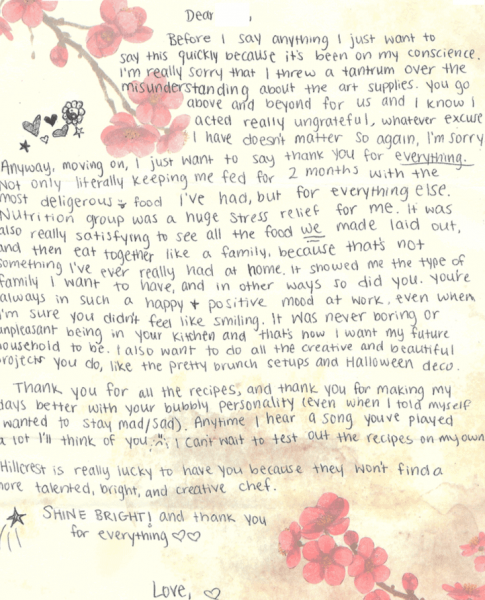 Dear ,
Before I say anything I just want to
say this quickly because it's been on my conscience.
I'm really sorry that I threw a tantrum over the
misunderstanding about the art supplies. You go
above and beyond for us and I know I
acted really ungrateful, whatever excuse
I have doesn't matter so again, I'm sorry
Anyway, moving on, I just want to say thank you for everything.
Not only literally keeping me fed for 2 months with the
most deligerous food I've had, but for everything else.
Nutrition group was a huge stress relief for me. It was
also really satisfying to see all the food we made laid out,
and then eat together like a family, because that's not
something I've ever really had at home. It showed me the type of
family I want to have, and in other ways so did you. You're
always in such a happy + positive mood at work, even when
I'm sure you didn't feel like smiling. It was never boring or
unpleasant being in your kitchen and that's how I want my future
household to be. I also want to do all the creative and beautiful
projects you do, like the pretty brunch setups and Halloween deco.
Thank you for all the recipes, and thank you for making my
days better with your bubbly personality (even when I told myself
I wanted to stay mad/sad). Anytime I hear a song you've played
a lot I'll think of you. I can't wait to test out the recipes on my own
Hillcrest is really lucky to have you because they won't find a
more talented, bright, and creative chef.
SHINE BRIGHT! and thank you
for everything ♡♡
Love, ♡